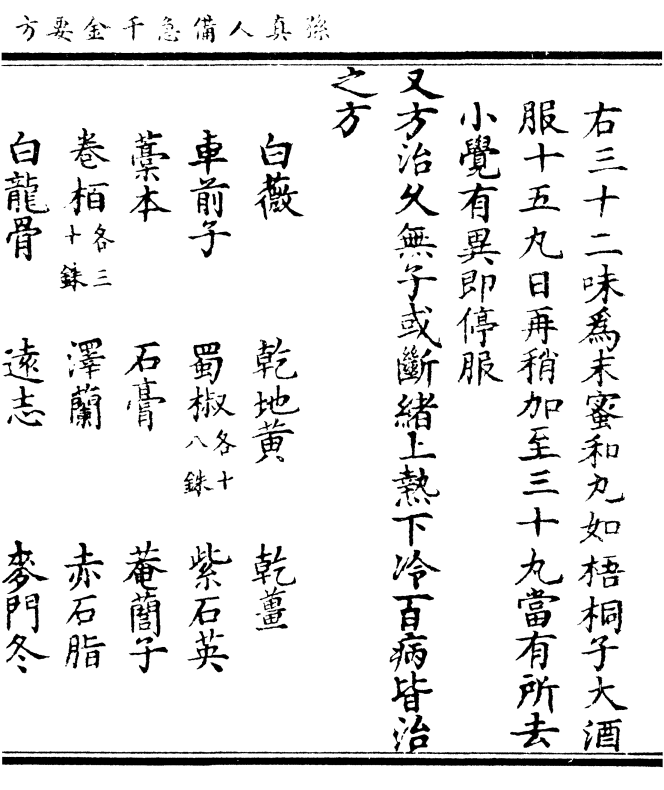 孫真人備急千金要方
右三十二味爲末蜜和丸如梧桐子大酒
服十五丸日再稍加至三十丸當有所去
小覺有異即停服
又方治久無子或斷緒上熱下冷百病皆治
之方
白薇　乾地黃　乾薑
車前子　蜀椒各十八銖　紫石英
藁本　石膏　菴䕡子
卷栢各三十銖　澤蘭　赤石脂
白龍骨　遠志　麥門冬